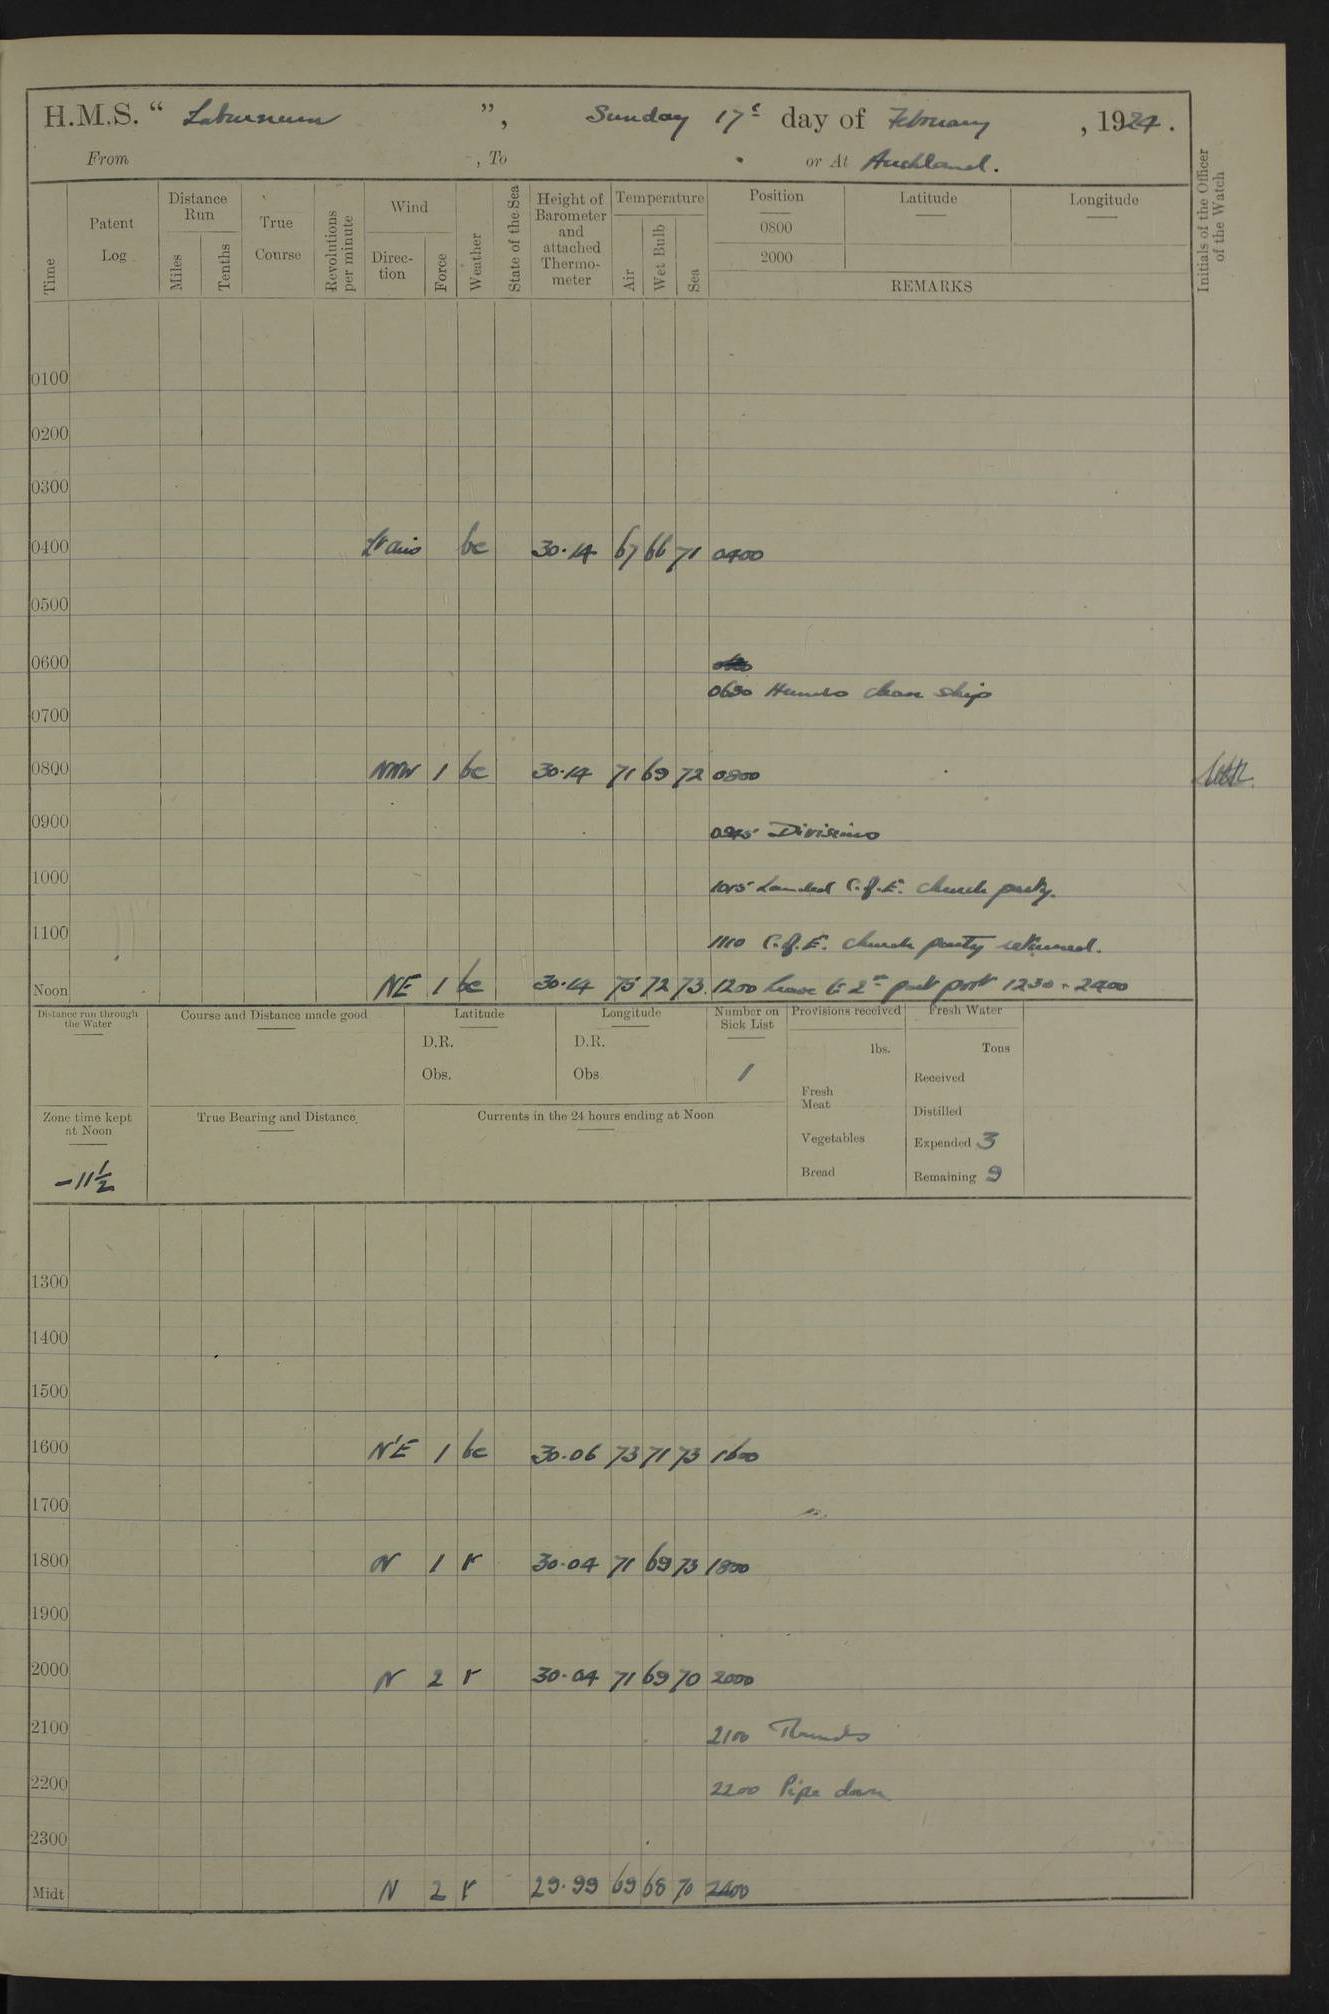 H.M.S. “ Laburnum ”, Sunday 17th day of February , 1924 .
From , To or At Auckland.
Time
Patent Log
Distance Run
Miles
Tenths
True Course
Revolutions per minute
Wind
Direction
Force
Weather
State of the Sea
Height of Barometer and attached Thermometer
Temperature
Air
Wet Bulb
Sea
Position
0800
2000
Latitude
Longitude
REMARKS
Initials of the Officer of the Watch
0100
0200
0300
0400 Lt airs bc 30.14 67 66 71 0400
0500
0600
0630 Hands clean ship
0700
0800 NNW 1 bc 30.14 71 69 72 0800
0900
0945 Divisions
1000
1015 Landed C.of.E. church party.
1100
1110 C.of.E. church party returned.
Noon NE 1 bc 30.14 75 72 73 1200 Leave to 2nd part port 1230 - 2400
Distance run through the Water
Course and Distance made good
Latitude
D.R.
Obs.
Longitude
D.R.
Obs
Number on Sick List
1
Provisions received
lbs.
Fresh Meat
Vegetables
Bread
Fresh Water
Tons
Received
Distilled
Expended 3
Remaining 9
Zone time kept at Noon
-11½
True Bearing and Distance
Currents in the 24 hours ending at Noon
1300
1400
1500
1600 N'E 1 bc 30.06 73 71 73 1600
1700
1800 N 1 r 30.04 71 69 73 1800
1900
2000 N 2 r 30.04 71 69 70 2000
2100
2100 Rounds
2200
2200 Pipe down
2300
Midt N 2 r 29.99 69 68 70 2400